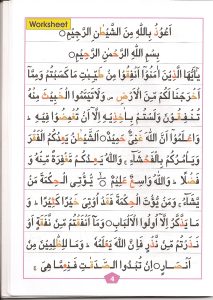 Worksheet
اَعُوْذُ بِاللّٰهِ مِنَ الشَّيْطٰنِ الرَّجِيْمِ ○
بِسْمِ اللّٰهِ الرَّحْمٰنِ الرَّحِيْمِ ○
يٰٓاَيُّهَا الَّذِيْنَ اٰمَنُوْٓا اَنْفِقُوْا مِنْ طَيِّبٰتِ مَا كَسَبْتُمْ وَمِمَّآ
اَخْرَجْنَا لَكُمْ مِّنَ الْاَرْضِ ۪ وَلَا تَيَمَّمُوا الْخَبِيْثَ مِنْهُ
تُنْفِقُوْنَ وَلَسْتُمْ بِاٰخِذِيْهِ اِلَّآ اَنْ تُغْمِضُوْا فِيْهِ ؕ
وَاعْلَمُوْٓا اَنَّ اللّٰهَ غَنِيٌّ حَمِيْدٌ ○ اَلشَّيْطٰنُ يَعِدُكُمُ الْفَقْرَ
وَيَاْمُرُكُمْ بِالْفَحْشَآءِ ۚ وَاللّٰهُ يَعِدُكُمْ مَّغْفِرَةً مِّنْهُ وَ
فَضْلًا ؕ وَاللّٰهُ وَاسِعٌ عَلِيْمٌ ○ يُّؤْتِي الْحِكْمَةَ مَنْ
يَّشَآءُ ۚ وَمَنْ يُّؤْتَ الْحِكْمَةَ فَقَدْ اُوْتِيَ خَيْرًا كَثِيْرًا ؕ وَ
مَا يَذَّكَّرُ اِلَّآ اُولُوا الْاَلْبَابِ ○ وَمَآ اَنْفَقْتُمْ مِّنْ نَّفَقَةٍ اَوْ
نَذَرْتُمْ مِّنْ نَّذْرٍ فَاِنَّ اللّٰهَ يَعْلَمُهٗ ؕ وَمَا لِلظّٰلِمِيْنَ مِنْ
اَنْصَارٍ ○ اِنْ تُبْدُوا الصَّدَقٰتِ فَنِعِمَّا هِيَ ۚ
4